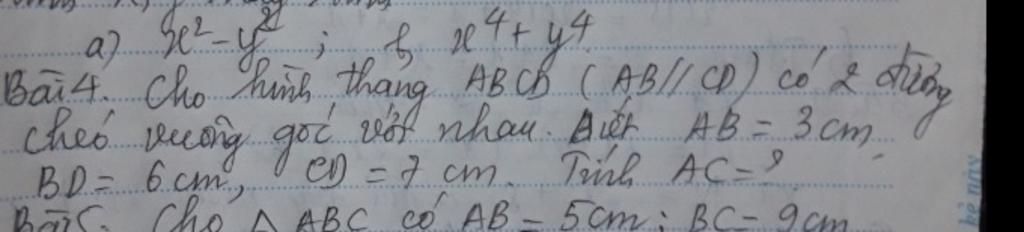 a) x² - y² ; b, x⁴ + y⁴
Bài 4. Cho hình thang ABCD (AB // CD) có 2 đường
chéo vuông góc với nhau. Biết AB = 3 cm,
BD = 6 cm, CD = 7 cm. Tính AC = ?
Bài 5. Cho Δ ABC có AB = 5cm ; BC = 9cm